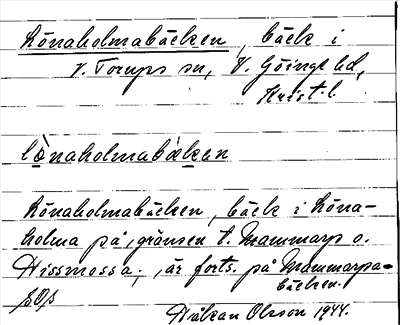 Lönaholmabäcken, bäck i
V. Torups sn, V. Göinge hd,
Krist. l.
lònaholmabàkен
Lönaholmabäcken, bäck i Löna-
holma på gränsen t. Mammarp o.
Hissmossa; är forts. på Mammarpa-
bäcken.
Håkan Olsson 1944.